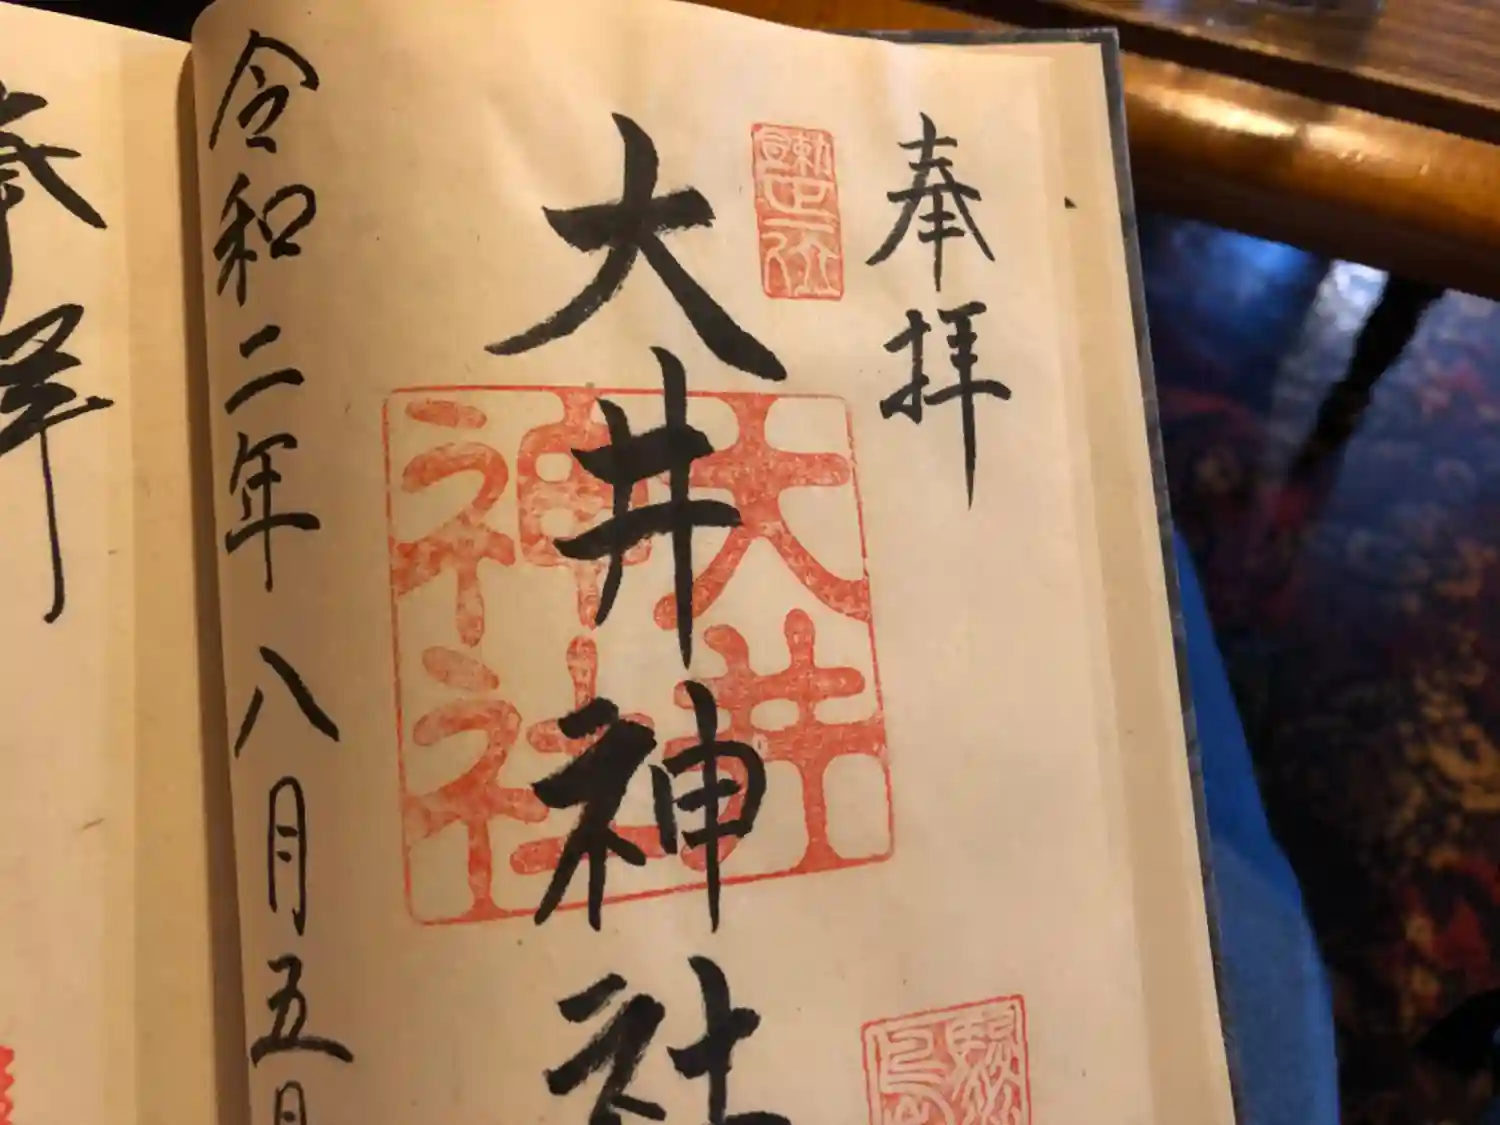 奉拝
大井神社
大井
神社
令和二年八月五日
奉拝